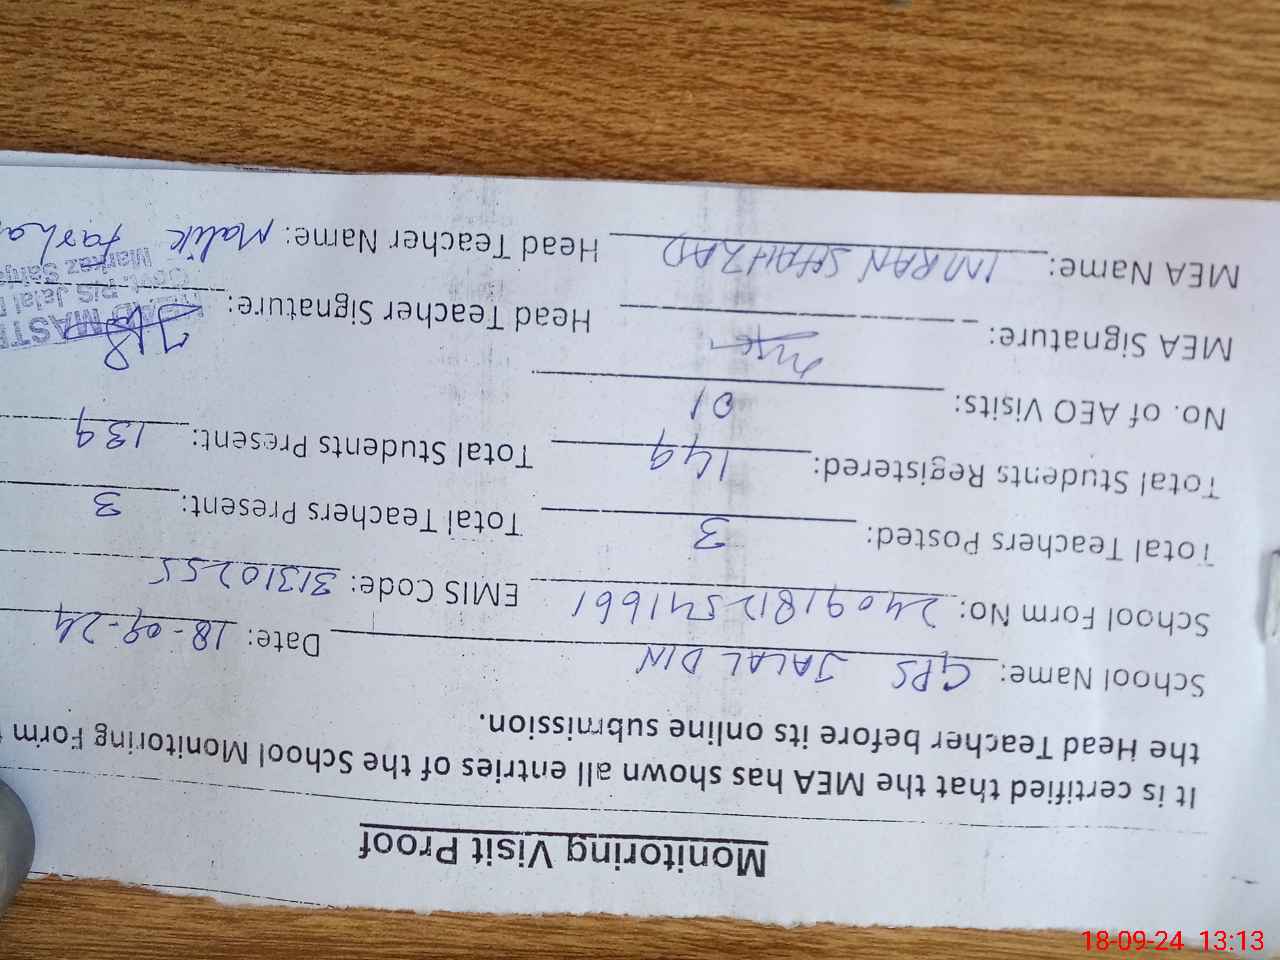 Monitoring Visit Proof
It is certified that the MEA has shown all entries of the School Monitoring Form
the Head Teacher before its online submission.
School Name: GPS JALAL DIN Date: 18-09-24
School Form No: 2409181125411661 EMIS Code: 31310255
Total Teachers Posted: 3 Total Teachers Present: 3
Total Students Registered: 149 Total Students Present: 139
No. of AEO Visits: 01
MEA Signature: Head Teacher Signature:
MEA Name: IMRAN SHAHZAD Head Teacher Name: Malik
HEAD MAST
Govt. P/S Jalal
Markaz
18-09-24 13:13